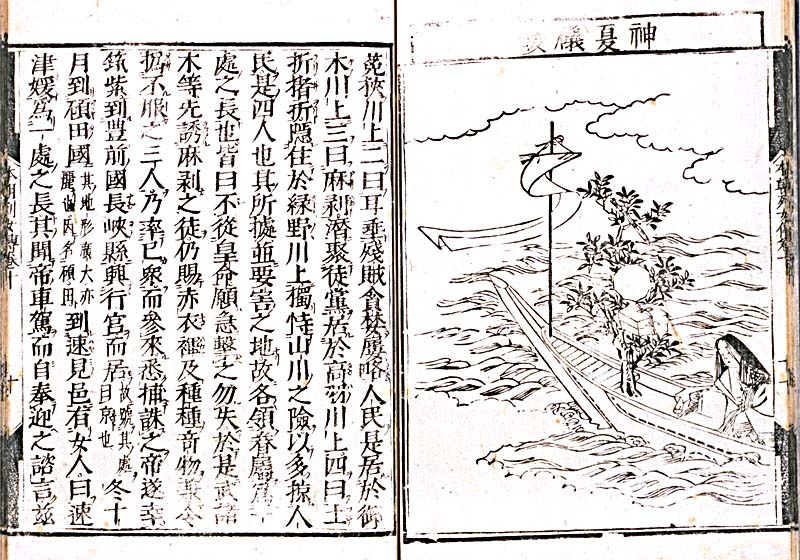 神夏礒
菟狹川上二曰耳垂殘賊貪婪屢略人民是居於御
木川上三曰麻剥潛聚徒黨居於高羽川上四曰土
折猪折隱住於緑野川上獨恃山川之險以多掠人
民是四人也其所據並要害之地故各領眷屬爲一
處之長也皆曰不從皇命願急擊之勿失於是武諸
木等先誘麻剥之徒仍賜赤衣褌及種種奇物兼令
撝不服之三人乃率己衆而參來悉捕誅之帝遂幸
筑紫到豊前國長峽縣興行宮而居故號其處曰京也冬十
月到碩田國其地形廣大亦麗也因名碩田到速見邑有女人曰速
津媛爲一處之長其聞帝車駕而自奉迎之諮言茲
十